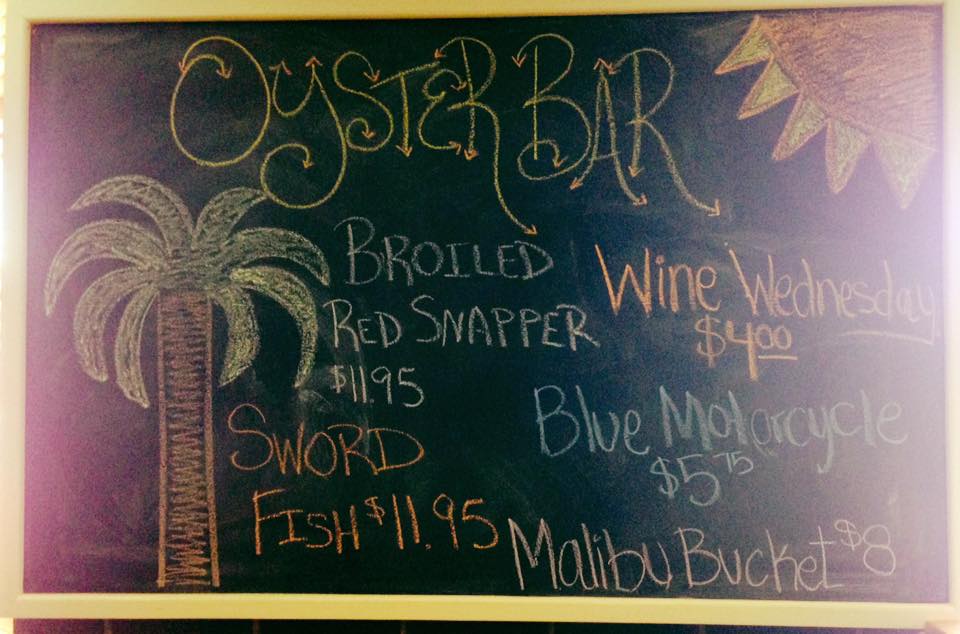 OYSTER BAR
BROILED
RED SNAPPER
$11.95
SWORD
FISH $11.95
Wine Wednesday
$4.00
Blue Motorcycle
$5.75
Malibu Bucket $8